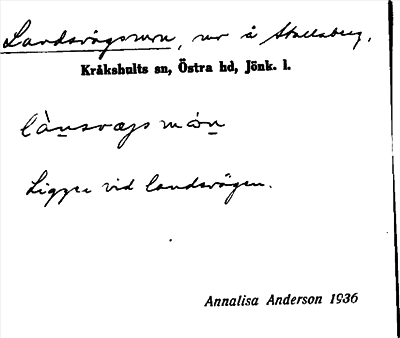 Landsvägsmon, mo å Stallsberg.
Kråkshults sn, Östra hd, Jönk. l.
lànsvægsmón
Ligger vid landsvägen.
Annalisa Anderson 1936